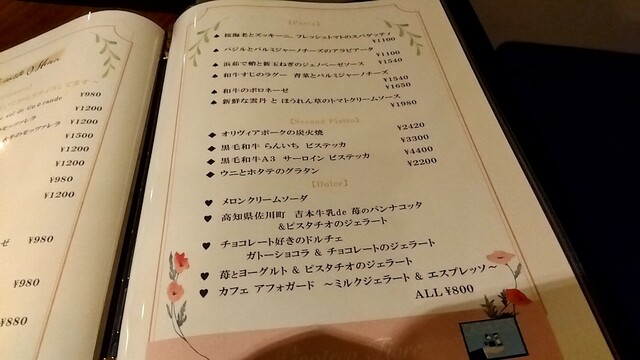 ¥980
¥1200
¥1200
¥1500
¥1200
¥1200
¥1200
ゼ ¥980
¥980
¥880
【Pasta】
桜海老とズッキーニ、フレッシュトマトのスパゲッティ ¥1100
バジルとパルミジャーノチーズのアラビアータ ¥1100
浜茹で蛸と新玉ねぎのジェノベーゼソース ¥1540
和牛すじのラグー 青菜とパルミジャーノチーズ ¥1540
和牛のボロネーゼ ¥1650
新鮮な雲丹 と ほうれん草のトマトクリームソース ¥1980
【Second Piatto】
オリヴィアポークの炭火焼 ¥2420
黒毛和牛 らんいち ビステッカ ¥3300
黒毛和牛A3 サーロイン ビステッカ ¥4400
ウニとホタテのグラタン ¥2200
【Dolce】
メロンクリームソーダ
高知県佐川町 吉本牛乳de 苺のパンナコッタ
&ピスタチオのジェラート
チョコレート好きのドルチェ
ガトーショコラ & チョコレートのジェラート
苺とヨーグルト & ピスタチオのジェラート
カフェ アフォガード ～ミルクジェラート & エスプレッソ～
ALL ¥800